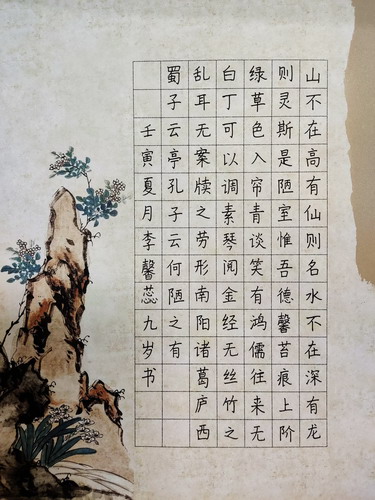 山不在高有仙则名水不在深有龙
则灵斯是陋室惟吾德馨苔痕上阶
绿草色入帘青谈笑有鸿儒往来无
白丁可以调素琴阅金经无丝竹之
乱耳无案牍之劳形南阳诸葛庐西
蜀子云亭孔子云何陋之有
壬寅夏月李馨蕊九岁书